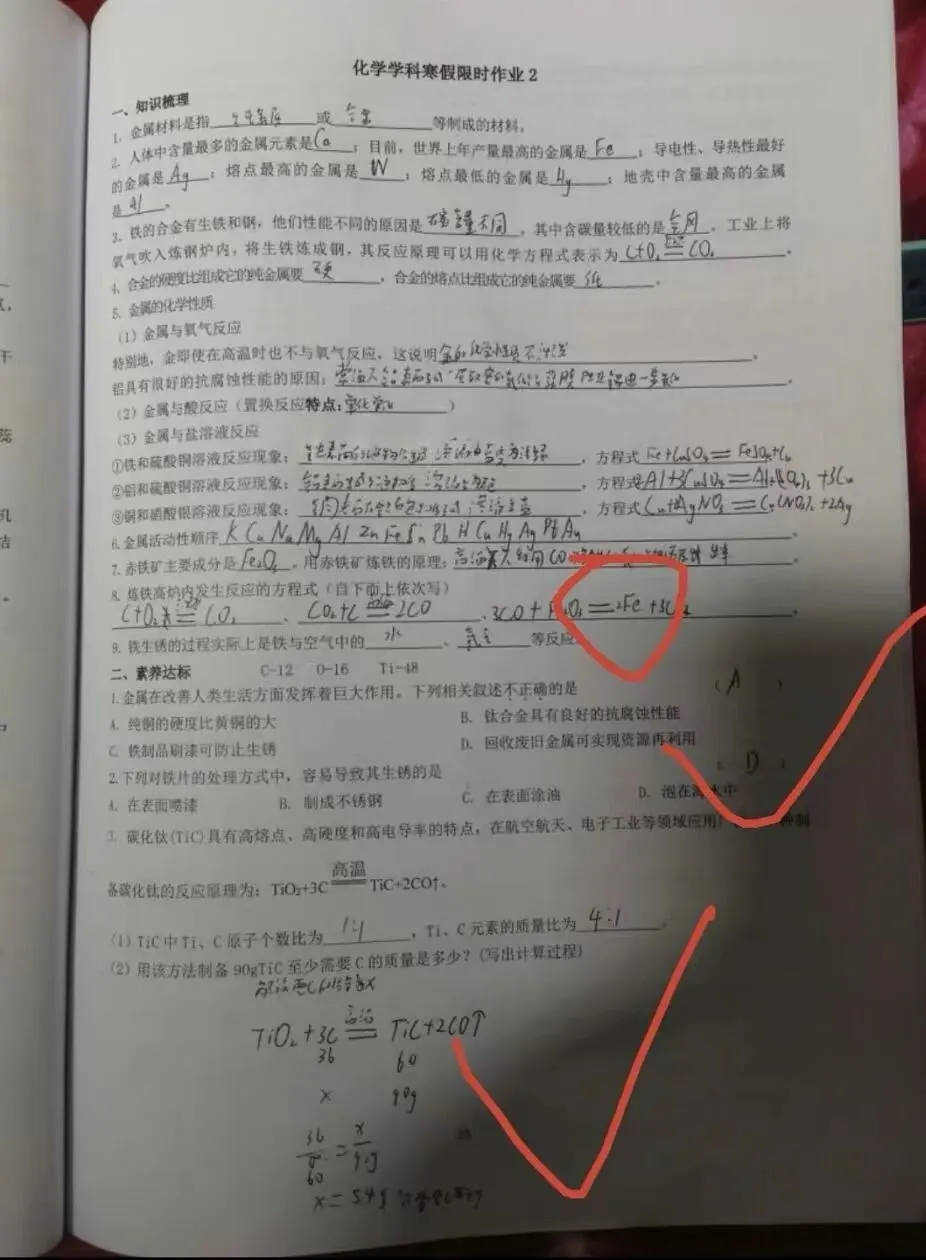 化学学科寒假限时作业2
一、知识梳理
1. 金属材料是指 或 合金 等制成的材料。
2. 人体中含量最多的金属元素是Ca；目前，世界上年产量最高的金属是Fe；导电性、导热性最好
的金属是Ag；熔点最高的金属是W；熔点最低的金属是Hg；地壳中含量最高的金属
是Al。
3. 铁的合金有生铁和钢，他们性能不同的原因是 碳含量不同，其中含碳量较低的是 钢。工业上将
氧气吹入炼钢炉内，将生铁炼成钢，其反应原理可以用化学方程式表示为 C+O₂ = CO₂。
4. 合金的硬度比组成它的纯金属要 硬，合金的熔点比组成它的纯金属要 低。
5. 金属的化学性质
（1）金属与氧气反应
特别地，金即使在高温时也不与氧气反应，这说明金的化学性质不活泼
铝具有很好的抗腐蚀性能的原因：
（2）金属与酸反应（置换反应特点： ）
（3）金属与盐溶液反应
①铁和硫酸铜溶液反应现象： ，方程式 Fe+CuSO₄=FeSO₄+Cu
②铝和硫酸铜溶液反应现象： ，方程式 +3Cu
③铜和硝酸银溶液反应现象： ，方程式 +2Ag
6. 金属活动性顺序 K Ca Na Mg Al Zn Fe Sn Pb H Cu Hg Ag Pt Au
7. 赤铁矿主要成分是 Fe₂O₃。用赤铁矿炼铁的原理：
8. 炼铁高炉内发生反应的方程式（自下而上依次写）
C+O₂ = CO₂、 CO₂+C = 2CO、 3CO+ = 2Fe+
9. 铁生锈的过程实际上是铁与空气中的 水、 氧气 等反应
二、素养达标 C-12 O-16 Ti-48
1.金属在改善人类生活方面发挥着巨大作用。下列相关叙述不正确的是 （ A ）
A. 纯铜的硬度比黄铜的大 B. 钛合金具有良好的抗腐蚀性能
C. 铁制品刷漆可防止生锈 D. 回收废旧金属可实现资源再利用
2.下列对铁片的处理方式中，容易导致其生锈的是 （ D ）
A. 在表面喷漆 B. 制成不锈钢 C. 在表面涂油 D. 泡在海水中
3. 碳化钛(TiC)具有高熔点、高硬度和高电导率的特点，在航空航天、电子工业等领域应用 种制
备碳化钛的反应原理为：TiO₂+3C 高温 TiC+2CO↑。
(1) TiC中Ti、C原子个数比为 1:1，Ti、C元素的质量比为 4:1。
(2) 用该方法制备90gTiC至少需要C的质量是多少？(写出计算过程)
TiO₂+3C 高温 = TiC+2CO↑
36 60
x 90g
36/60 = x/90g
x=54g